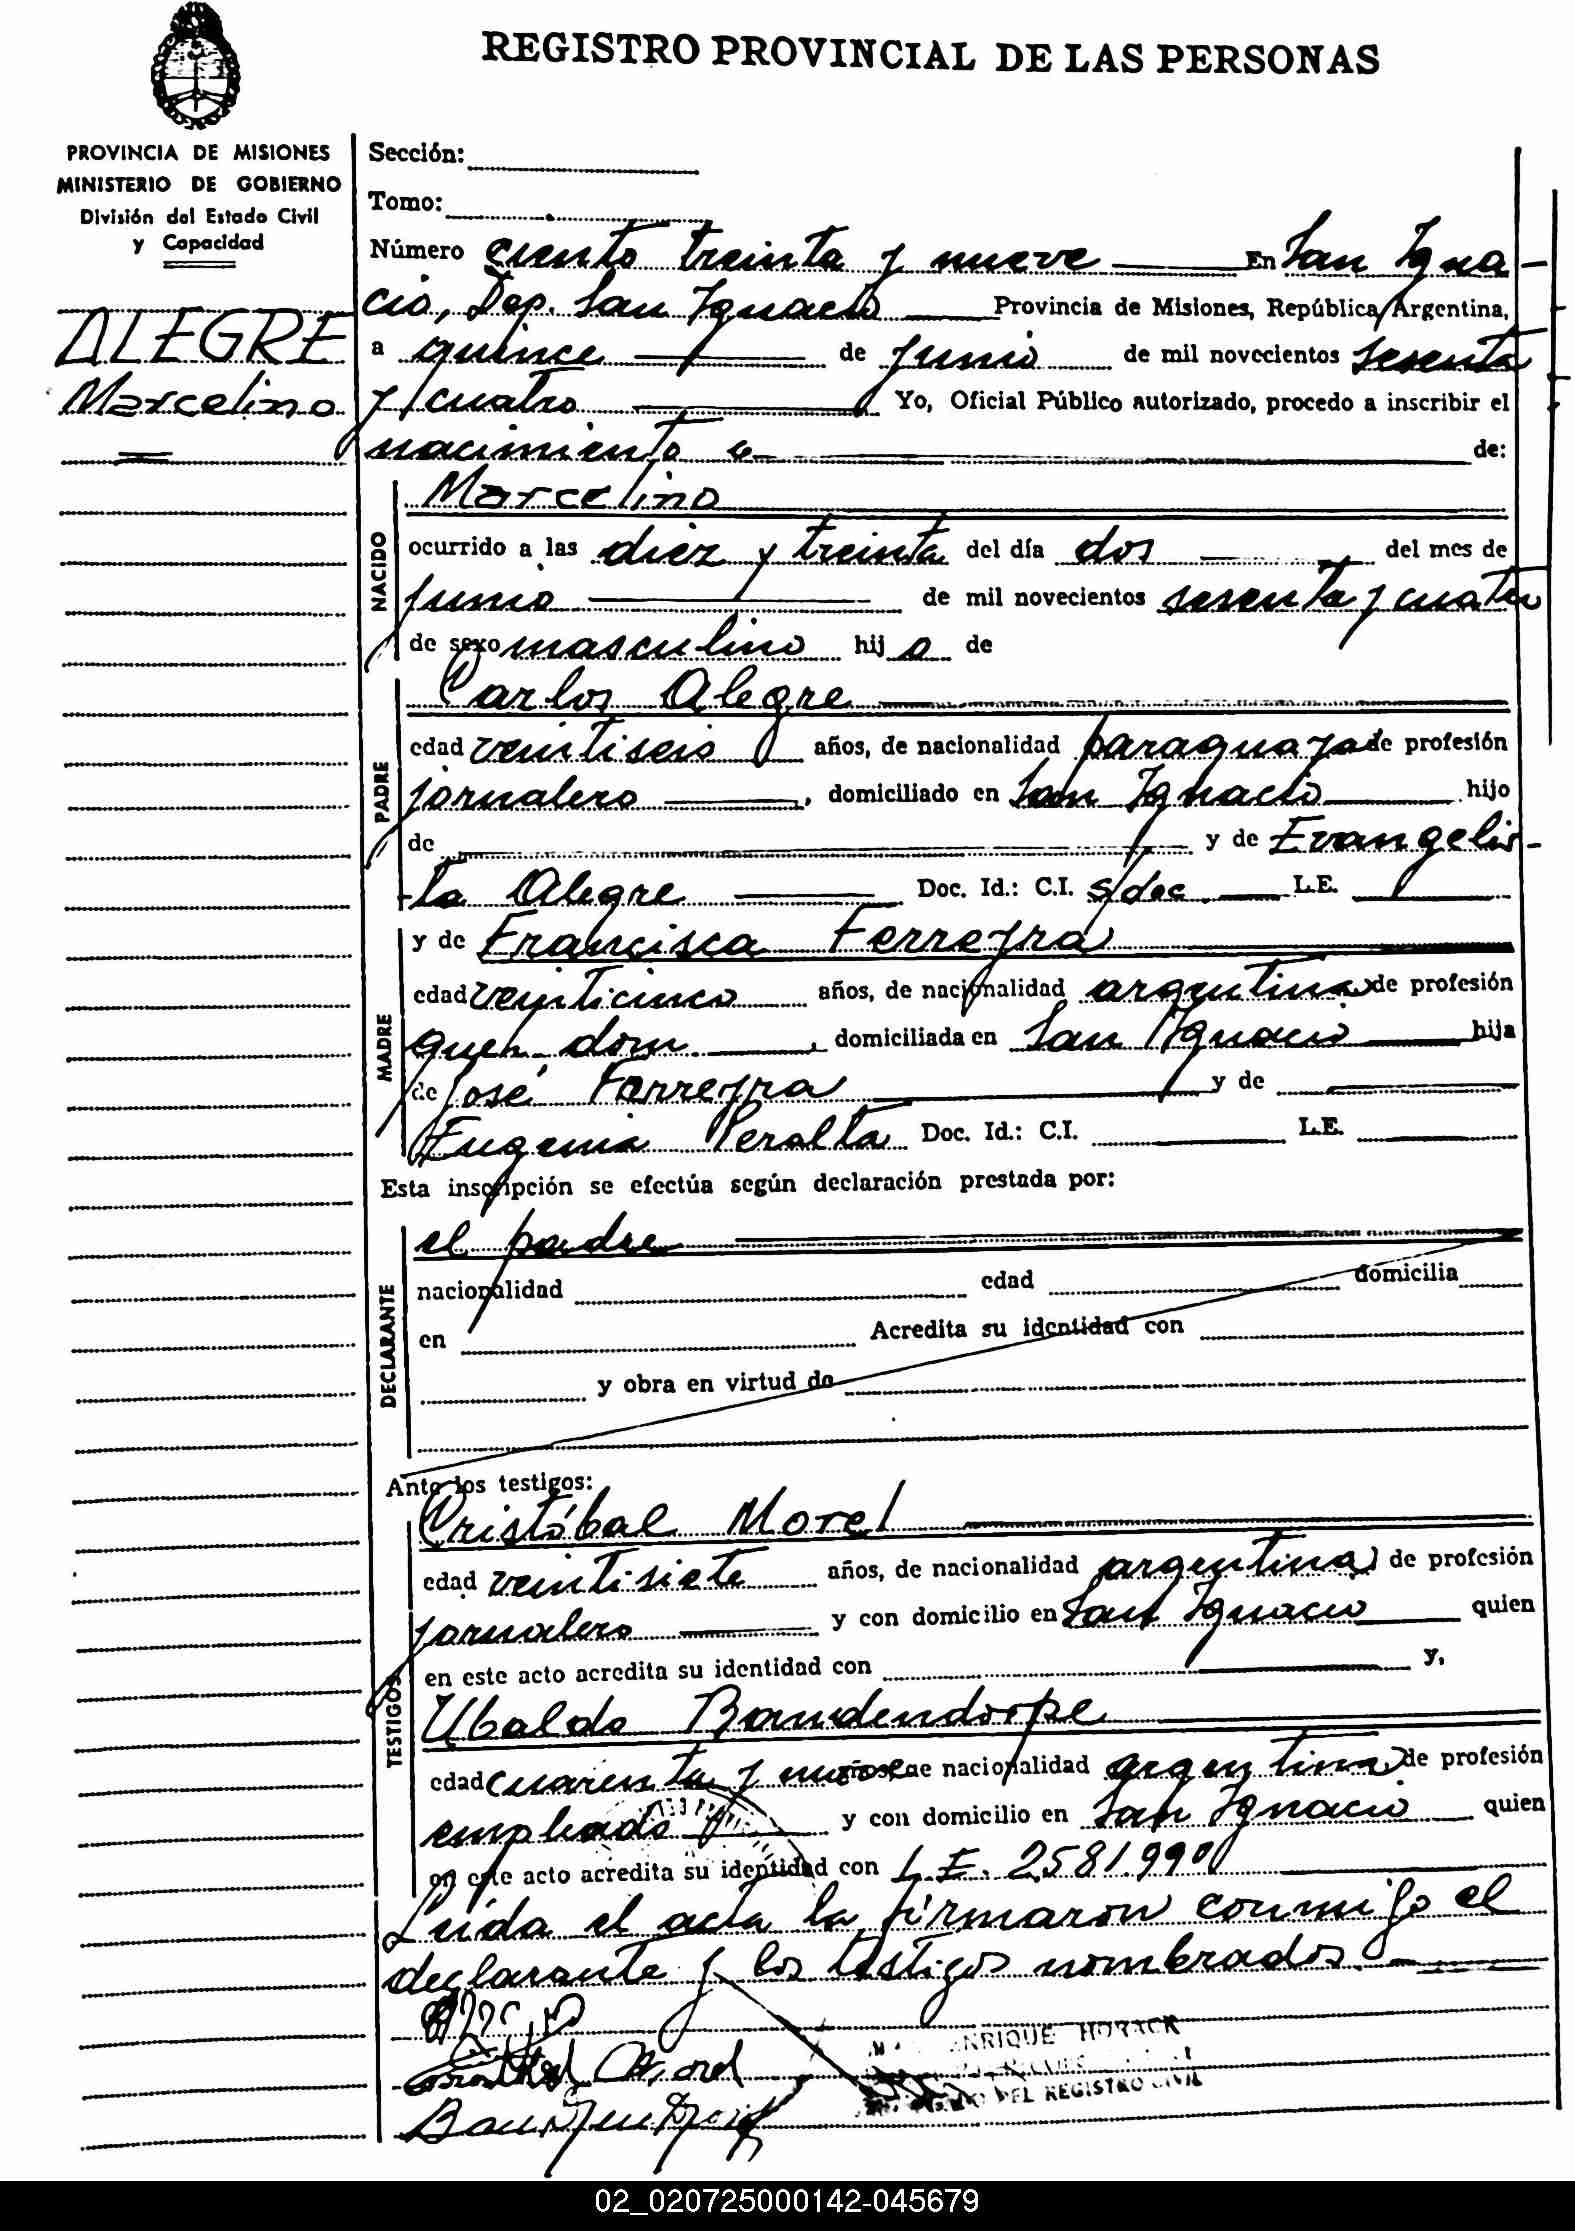 REGISTRO PROVINCIAL DE LAS PERSONAS
PROVINCIA DE MISIONES
MINISTERIO DE GOBIERNO
División del Estado Civil
y Capacidad
ALEGRE
Marcelino
Sección:
Tomo:
Número ciento treinta y nueve En San Igna-
cio, Dep. San Ignacio Provincia de Misiones, República Argentina,
a quince de junio de mil novecientos sesenta
y cuatro Yo, Oficial Público autorizado, procedo a inscribir el
nacimiento de:
NACIDO
Marcelino
ocurrido a las diez y treinta del día dos del mes de
junio de mil novecientos sesenta y cuatro
de sexo masculino hijo de
PADRE
Carlos Alegre
edad veintiseis años, de nacionalidad paraguaya de profesión
jornalero, domiciliado en San Ignacio hijo
de y de Evangelis-
ta Alegre Doc. Id.: C.I. s/doc. L.E.
MADRE
y de Francisca Ferreyra
edad veinticinco años, de nacionalidad argentina de profesión
queh. dom., domiciliada en San Ignacio hija
de José Ferreyra y de
Eugenia Peralta Doc. Id.: C.I. L.E.
Esta inscripción se efectúa según declaración prestada por:
DECLARANTE
el padre
nacionalidad edad domicilia
en Acredita su identidad con
y obra en virtud de
Ante los testigos:
TESTIGOS
Cristóbal Morel
edad veintisiete años, de nacionalidad argentina de profesión
jornalero y con domicilio en San Ignacio quien
en este acto acredita su identidad con y,
Ubaldo Bandendorpe
edad cuarenta y nueve años, de nacionalidad argentina de profesión
empleado y con domicilio en San Ignacio quien
en este acto acredita su identidad con L.E. 2581.990
Leída el acta la firmaron conmigo el
declarante y los testigos nombrados.
ENRIQUE HORACK
DEL REGISTRO CIVIL
02_020725000142-045679